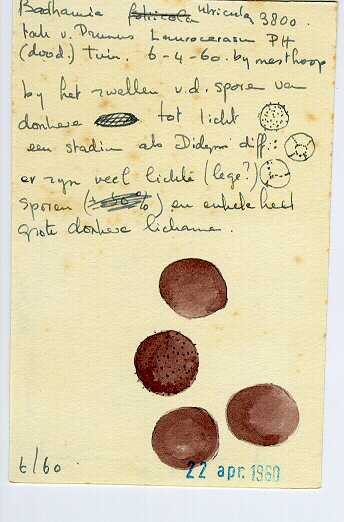 Badhamia foliicola utricula 3800.
tak v. Prunus Laurocerasus PH
(dood.) tuin. 6-4-60. by mesthoop
by het zwellen v.d. sporen van
donkere tot licht
een stadium als Didym. diff.:
er zyn veel lichte (lege?)
sporen ( % ) en enkele heel
grote donkere lichamen.
6/60.
22 apr. 1960